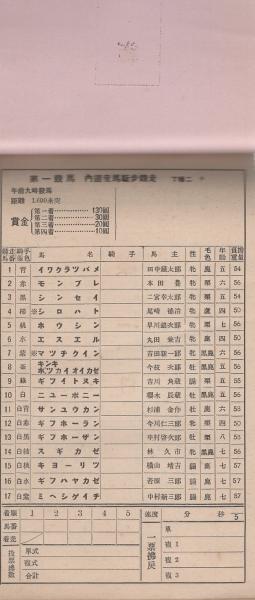 第一競馬 内国産馬駈歩競走 丁種二
午前九時發馬
距離 1,600米突
賞金
第一着 130圓
第二着 30圓
第三着 20圓
第四着 10圓
馬名 騎手 馬主 性 毛色 年齢
1 青 イワクラツバメ 田中蔵太郎 牝 鹿 五 54
2 赤 モンブレ 本田豊 牝 栗 六 56
3 黒 シンセイ 二宮幸太郎 鹿 五
4 シロハト 尾崎徳治 牝 四 50
5 桃 ホウシン 早川銀次郎 牡 栗 七
6 水 エスエル 丸田兼吉 鹿 四 50
7 紫 マツチクイン 吉田新一郎 牝 黒鹿 六 56
8 キンキホツカイオイカゼ 今枝次郎 五
9 緑 ギフイトヌキ 吉川角蔵 五
10 白 ニユーポニー 櫻木辰蔵 牡 黒鹿 五
11 白青 サンユウカン 杉浦金作 牡 鹿 六 58
12 白赤 ギフホーラン 今川仁三郎 牡 四 50
13 白黒 ギフホーザン 栗 八
14 白桔 スギカゼ 林久市 牝 黒鹿 六 56
15 白桃 キヨーリツ 横山靖吉 鹿 七 57
16 白水 ギフハヤカゼ 若原三郎 鹿 七 57
17 白紫 ミヘシゲイチ 中村新三郎 鹿 七 57
着順 1 2 3 4 5
馬番
着差
投票總数 單式
複式
合計
速度 分 秒 5
一票拂戻
單
複1
複2
複3